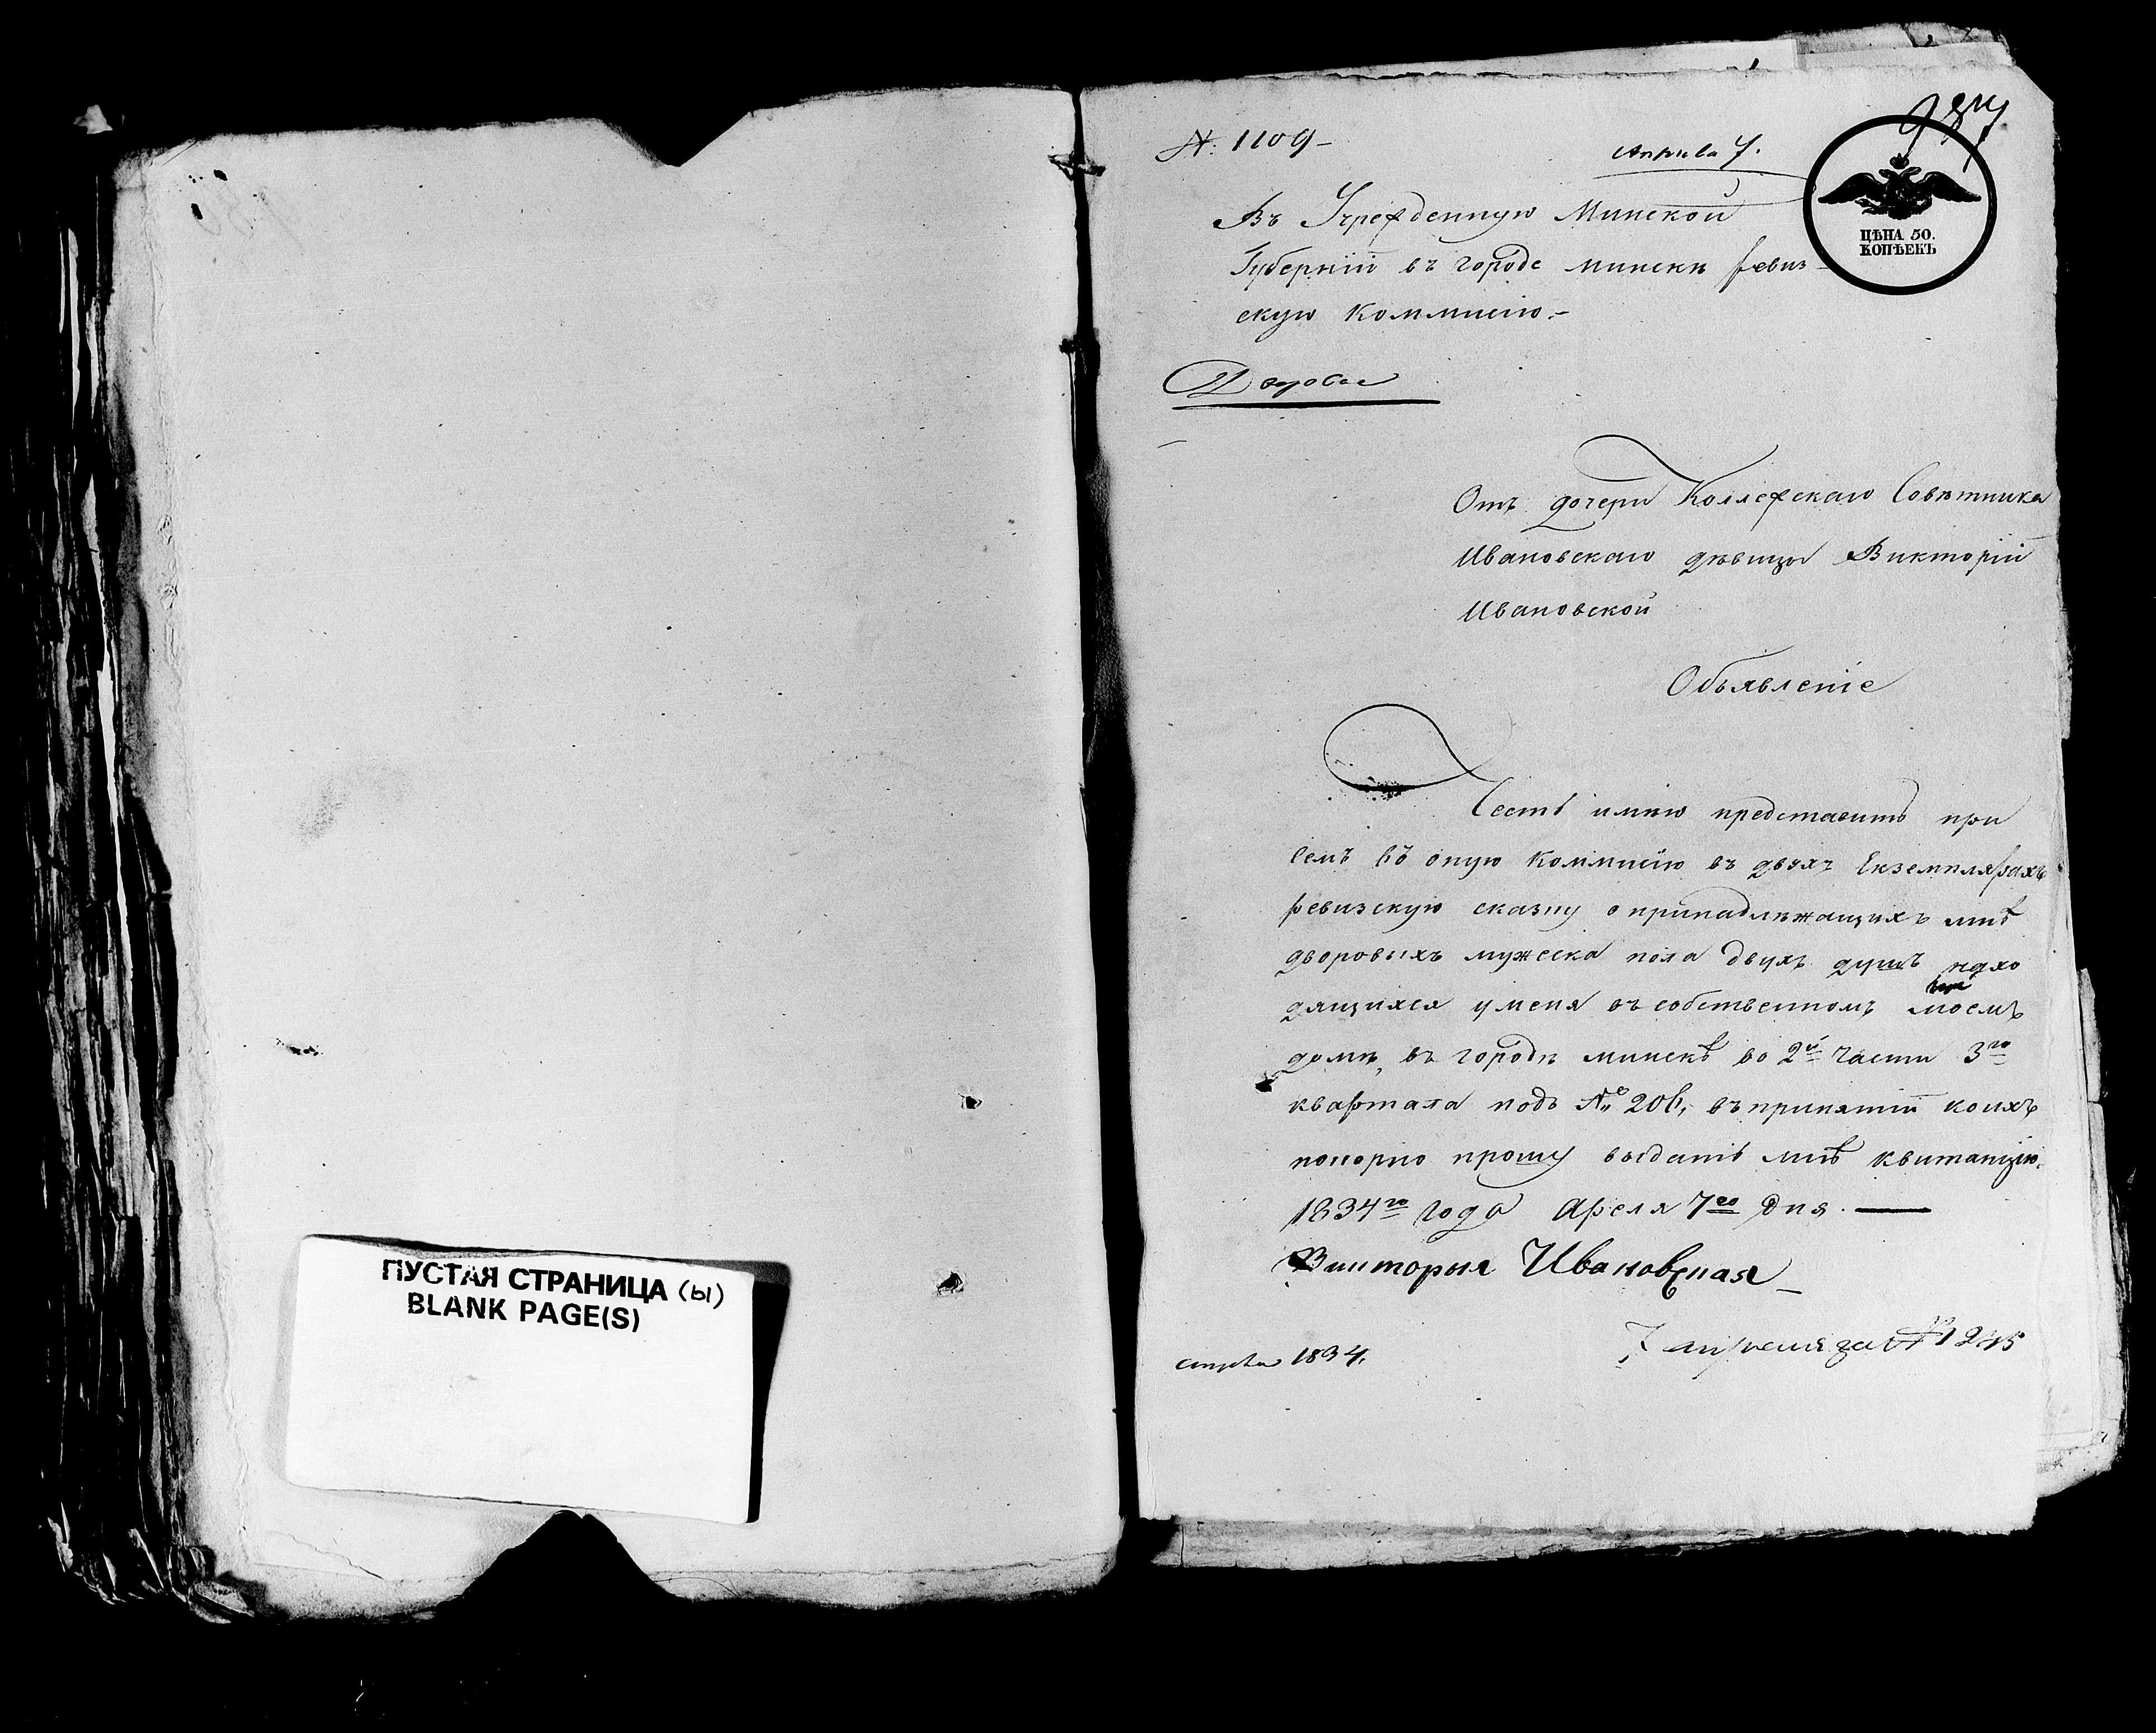 ПУСТАЯ СТРАНИЦА (ы)
BLANK PAGE(S)
№ 1109
Апрѣля 7.
ЦѢНА 50.
КОПѢЕКЪ
Въ Учрежденную Минской
Губерніи въ городе минскѣ ревиз-
скую Коммисію.-
Дворовые
Отъ дочери Коллежскаго Совѣтника
Ивановскаго дѣвицы Викторіи
Ивановской
Объявленіе
Честь имѣю представить при
семъ въ оную Коммисію въ двухъ Екземплярахъ
ревизскую сказку о принадлѣжащихъ мнѣ
дворовыхъ мужеска пола двухъ душъ нахо
дящихся у меня въ собственномъ моемъ
домѣ, въ городѣ минскѣ во 2й части 3го
квартала подъ № 206, въ принятіи коихъ
покорно прошу выдать мнѣ квитанцію.
1834го года Апреля 7го дня.
Виктория Ивановская
7 апреля за № 1245
1834.